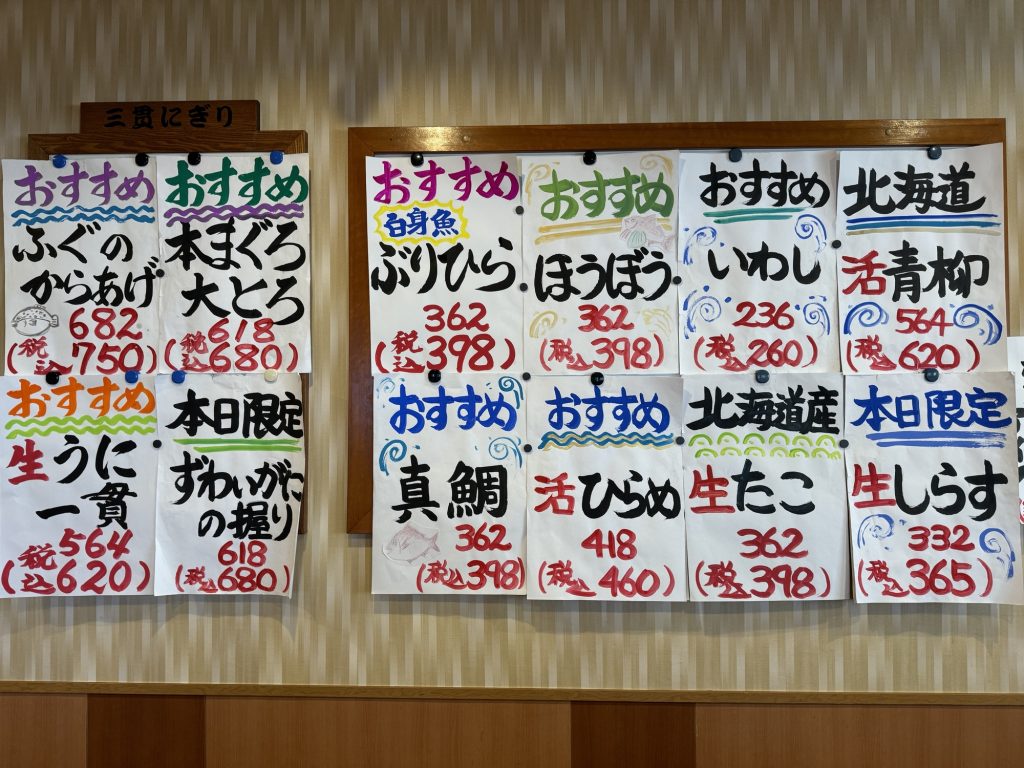 三貫にぎり
おすすめ
ふぐの
からあげ
682
(税込750)
おすすめ
本まぐろ
大とろ
618
(税込680)
おすすめ
生うに
一貫
564
(税込620)
本日限定
ずわいがに
の握り
618
(税込680)
おすすめ
白身魚
ぶりひら
362
(税込398)
おすすめ
ほうぼう
362
(税込398)
おすすめ
いわし
236
(税込260)
北海道
活青柳
564
(税込620)
おすすめ
真鯛
362
(税込398)
おすすめ
活ひらめ
418
(税込460)
北海道産
生たこ
362
(税込398)
本日限定
生しらす
332
(税込365)